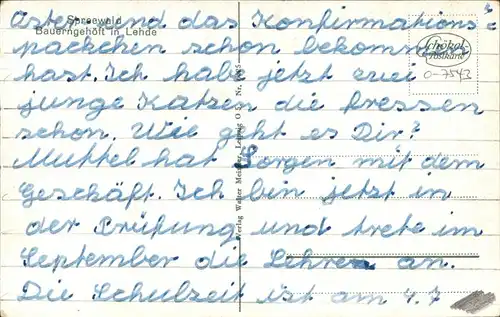 Spreewald
Bauerngehöft in Lehde
Oster und das Konfirmations=
päckchen schon bekommen
hast. Ich hab jetzt zwei
junge Katzen die fressen
schon. Wie geht es Dir?
Muttel hat Sorgen mit dem
Geschäft. Ich bin jetzt in
der Prüfung und trete im
September die Lehre an.
Die Schulzeit ist am 4.7
Schöko
Postkarte
0-7543
Verlag Walter Leipzig O